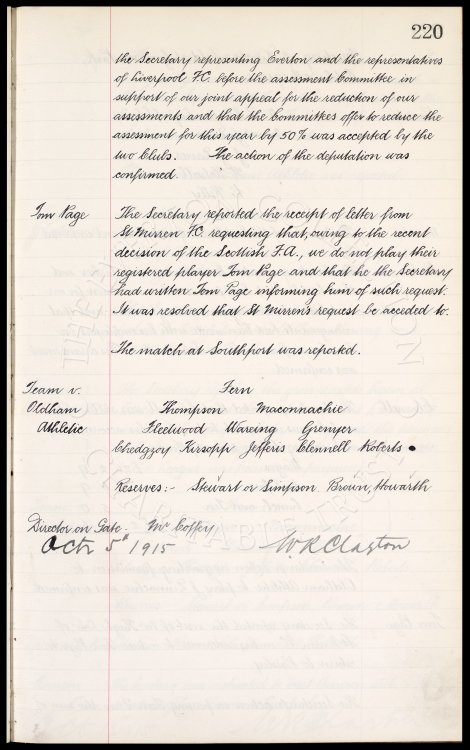 220
the Secretary representing Everton and the representatives
of Liverpool F.C. before the assessment Committee in
support of our joint appeal for the reduction of our
assessments and that the Committees offer to reduce the
assessment for this year by 50% was accepted by the
two Clubs. The action of the deputation was
confirmed.
Tom Page The Secretary reported the receipt of letter from
St Mirren F.C. requesting that, owing to the recent
decision of the Scottish F.A., we do not play their
registered player Tom Page and that he the Secretary
had written Tom Page informing him of such request.
It was resolved that St Mirren's request be acceded to.
The match at Southport was reported.
Team v. Fern
Oldham Thompson Maconnachie
Athletic Fleetwood Wareing Grenyer
Chedgzoy Kirsopp Jefferis Clennell Roberts
Reserves:- Stewart or Simpson Brown, Howarth
Director on Gate Mr Coffey
Octr 5th 1915 W.R. Clayton